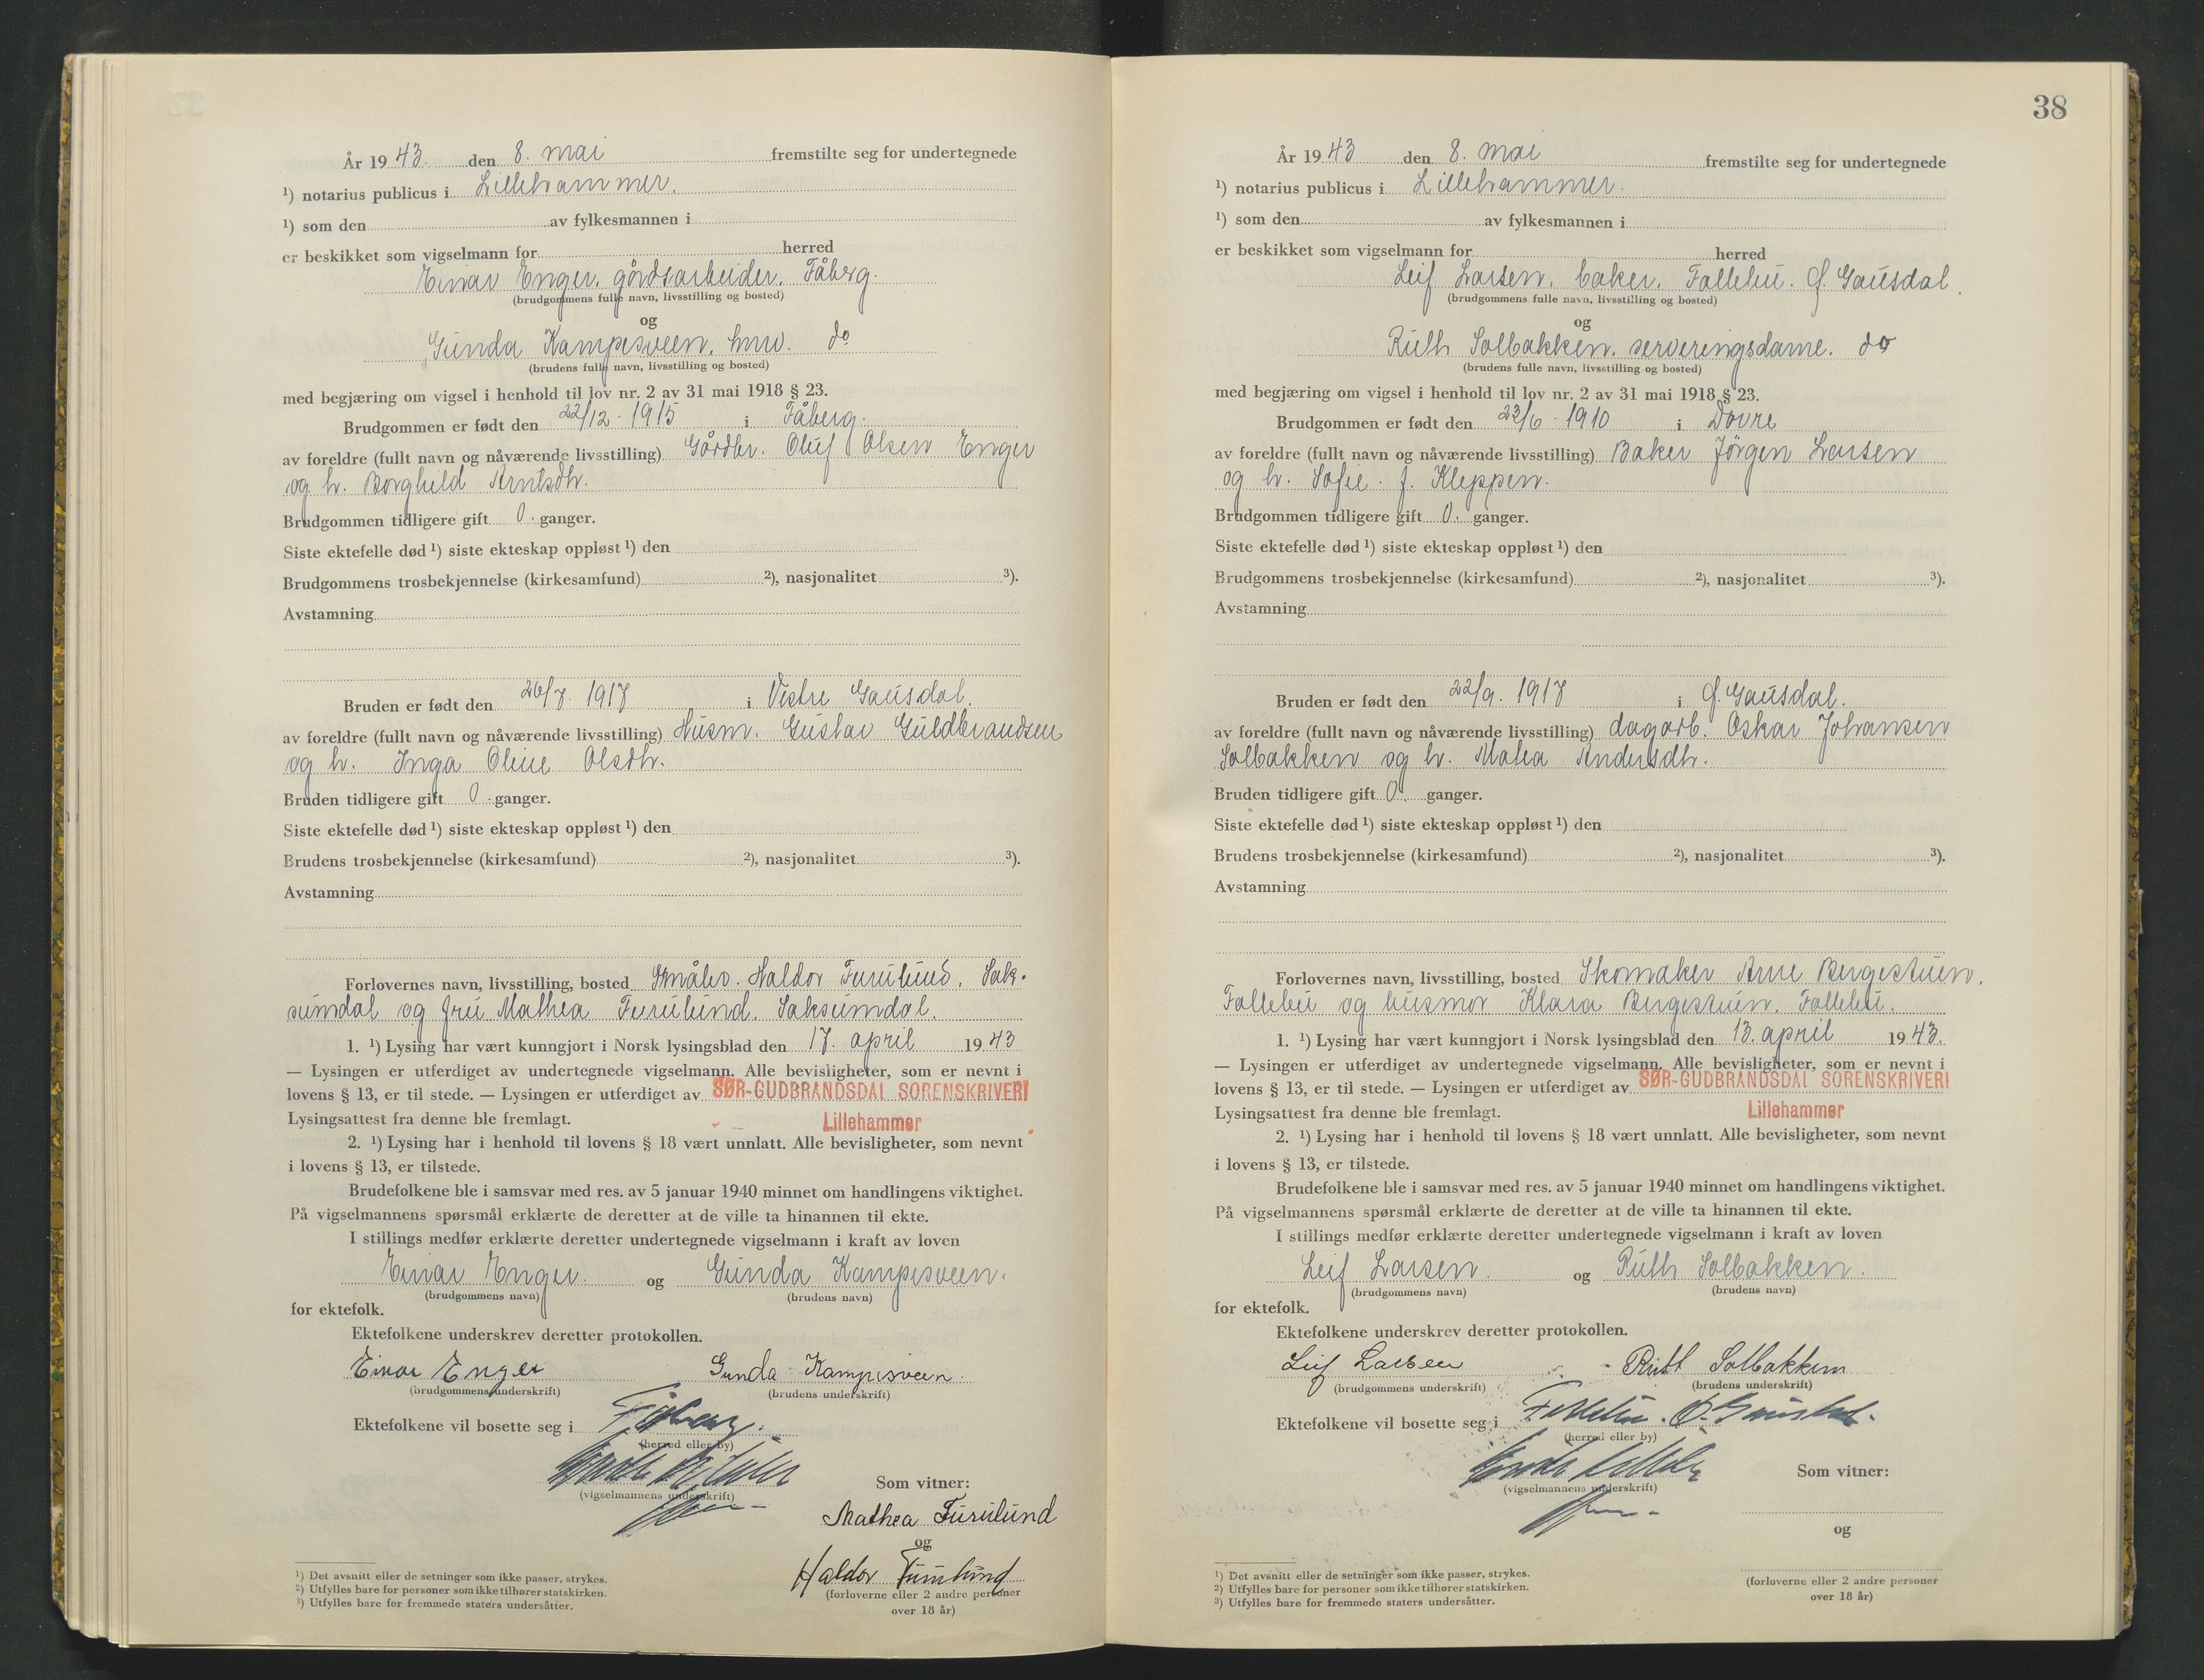 År 1943. den 8. mai fremstilte seg for undertegnede
¹) notarius publicus i Lillehammer.
¹) som den av fylkesmannen i
er beskikket som vigselmann for herred
Einar Enger, gårdsarbeider, Fåberg.
(brudgommens fulle navn, livsstilling og bosted)
og
Gunda Kampesveen, huw. do
(brudens fulle navn, livsstilling og bosted)
med begjæring om vigsel i henhold til lov nr. 2 av 31 mai 1918 § 23.
Brudgommen er født den 22/12 - 1915 i Fåberg.
av foreldre (fullt navn og nåværende livsstilling) Gårdbr. Oluf Olsen Enger
og h. Borghild Arntsdtr.
Brudgommen tidligere gift 0. ganger.
Siste ektefelle død ¹) siste ekteskap oppløst ¹) den
Brudgommens trosbekjennelse (kirkesamfund) ²), nasjonalitet ³).
Avstamning
Bruden er født den 26/7. 1917 i Vestre Gausdal.
av foreldre (fullt navn og nåværende livsstilling) Husm. Gustav Guldbrandsen
og h. Inga Oline Olsdtr.
Bruden tidligere gift 0. ganger.
Siste ektefelle død ¹) siste ekteskap oppløst ¹) den
Brudens trosbekjennelse (kirkesamfund) ²), nasjonalitet ³).
Avstamning
Forlovernes navn, livsstilling, bosted Småbr. Haldor Furulund, Sak-
sumdal og fru Mathea Furulund. Saksumdal.
1. ¹) Lysing har vært kunngjort i Norsk lysingsblad den 17. april 1943
— Lysingen er utferdiget av undertegnede vigselmann. Alle bevisligheter, som er nevnt i
lovens § 13, er til stede. — Lysingen er utferdiget av SØR-GUDBRANDSDAL SORENSKRIVERI
Lysingsattest fra denne ble fremlagt. Lillehammer
2. ¹) Lysing har i henhold til lovens § 18 vært unnlatt. Alle bevisligheter, som nevnt
i lovens § 13, er tilstede.
Brudefolkene ble i samsvar med res. av 5 januar 1940 minnet om handlingens viktighet.
På vigselmannens spørsmål erklærte de deretter at de ville ta hinannen til ekte.
I stillings medfør erklærte deretter undertegnede vigselmann i kraft av loven
Einar Enger. og Gunda Kampesveen.
(brudgommens navn) (brudens navn)
for ektefolk.
Ektefolkene underskrev deretter protokollen.
Einar Enger Gunda Kampesveen.
(brudgommens underskrift) (brudens underskrift)
Ektefolkene vil bosette seg i Fåberg.
(herred eller by)
(vigselmannens underskrift) Som vitner:
Mathea Furulund
og
Haldor Furulund
(forloverne eller 2 andre personer
over 18 år)
¹) Det avsnitt eller de setninger som ikke passer, strykes.
²) Utfylles bare for personer som ikke tilhører statskirken.
³) Utfylles bare for fremmede staters undersåtter.
38
År 1943 den 8. mai fremstilte seg for undertegnede
¹) notarius publicus i Lillehammer.
¹) som den av fylkesmannen i
er beskikket som vigselmann for herred
Leif Larsen, baker, Follebu. Ø. Gausdal.
(brudgommens fulle navn, livsstilling og bosted)
og
Ruth Solbakken, serveringsdame. do
(brudens fulle navn, livsstilling og bosted)
med begjæring om vigsel i henhold til lov nr. 2 av 31 mai 1918 § 23.
Brudgommen er født den 23/6 - 1910 i Dovre
av foreldre (fullt navn og nåværende livsstilling) Baker Jørgen Larsen
og h. Sofie f. Kleppen.
Brudgommen tidligere gift 0. ganger.
Siste ektefelle død ¹) siste ekteskap oppløst ¹) den
Brudgommens trosbekjennelse (kirkesamfund) ²), nasjonalitet ³).
Avstamning
Bruden er født den 22/9. 1917 i Ø. Gausdal.
av foreldre (fullt navn og nåværende livsstilling) dagarb. Oskar Johansen
Solbakken og h. Matea Andersdtr.
Bruden tidligere gift 0. ganger.
Siste ektefelle død ¹) siste ekteskap oppløst ¹) den
Brudens trosbekjennelse (kirkesamfund) ²), nasjonalitet ³).
Avstamning
Forlovernes navn, livsstilling, bosted Skomaker Arne Bergestuen,
Follebu og husmor Klara Bergestuen, Follebu.
1. ¹) Lysing har vært kunngjort i Norsk lysingsblad den 13. april 1943.
— Lysingen er utferdiget av undertegnede vigselmann. Alle bevisligheter, som er nevnt i
lovens § 13, er til stede. — Lysingen er utferdiget av SØR-GUDBRANDSDAL SORENSKRIVERI
Lysingsattest fra denne ble fremlagt. Lillehammer
2. ¹) Lysing har i henhold til lovens § 18 vært unnlatt. Alle bevisligheter, som nevnt
i lovens § 13, er tilstede.
Brudefolkene ble i samsvar med res. av 5 januar 1940 minnet om handlingens viktighet.
På vigselmannens spørsmål erklærte de deretter at de ville ta hinannen til ekte.
I stillings medfør erklærte deretter undertegnede vigselmann i kraft av loven
Leif Larsen. og Ruth Solbakken.
(brudgommens navn) (brudens navn)
for ektefolk.
Ektefolkene underskrev deretter protokollen.
Leif Larsen Ruth Solbakken
(brudgommens underskrift) (brudens underskrift)
Ektefolkene vil bosette seg i Follebu. Ø. Gausdal.
(herred eller by)
(vigselmannens underskrift) Som vitner:
og
(forloverne eller 2 andre personer
over 18 år)
¹) Det avsnitt eller de setninger som ikke passer, strykes.
²) Utfylles bare for personer som ikke tilhører statskirken.
³) Utfylles bare for fremmede staters undersåtter.